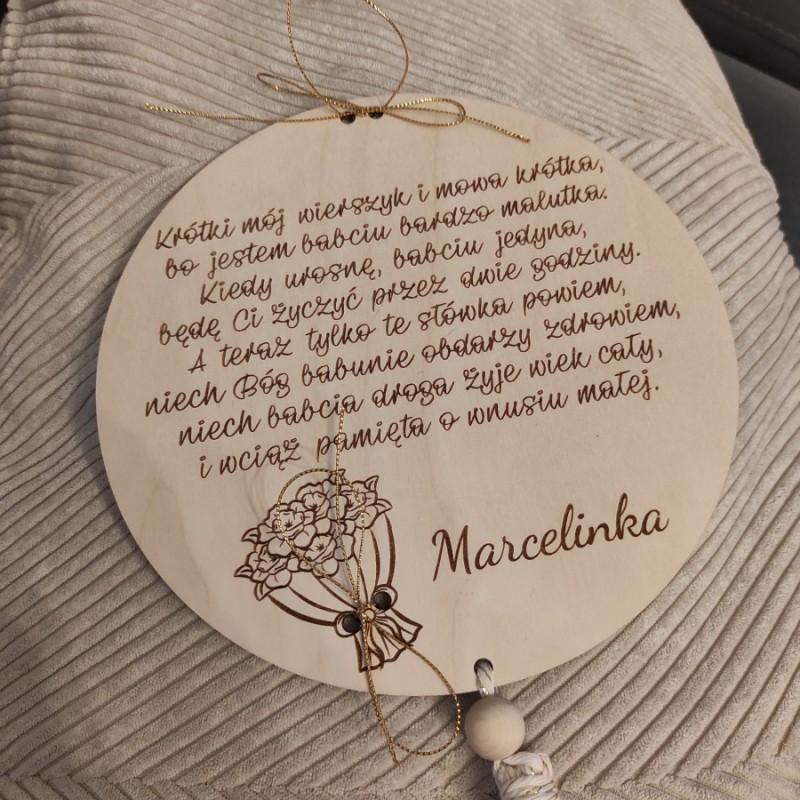 Krótki mój wierszyk i mowa krótka,
bo jestem babciu bardzo malutka.
Kiedy urosnę, babciu jedyna,
będę Ci życzyć przez dwie godziny.
A teraz tylko te słówka powiem,
niech Bóg babunie obdarzy zdrowiem,
niech babcia droga żyje wiek cały,
i wciąż pamięta o wnusiu małej.
Marcelinka